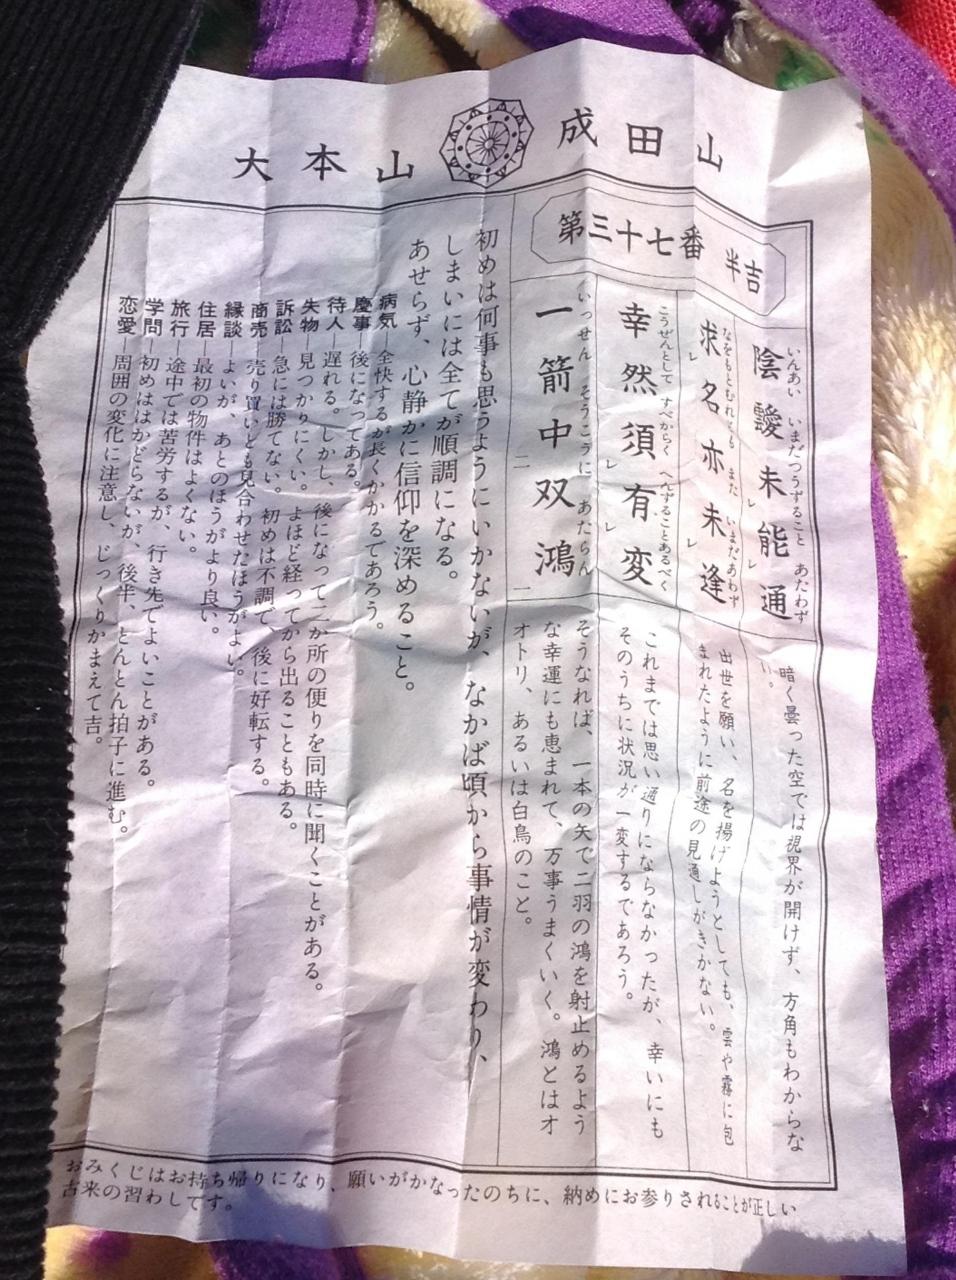 大本山 成田山
第三十七番 半吉
いんあい いまだつうずること あたわず
陰靉未能通
レ レ
暗く曇った空では視界が開けず、方角もわからな
い。
なをもとむれども また いまだあわず
求名亦未逢
レ レ
出世を願い、名を揚げようとしても、雲や霧に包
まれたように前途の見通しがきかない。
こうぜんとして すべからく へんずることあるべく
幸然須有変
レ レ
これまでは思い通りにならなかったが、幸いにも
そのうちに状況が一変するであろう。
いっせん そうこうに あたらん
一箭中双鴻
二 一
そうなれば、一本の矢で二羽の鴻を射止めるよう
な幸運にも恵まれて、万事うまくいく。鴻とはオ
オトリ、あるいは白鳥のこと。
初めは何事も思うようにいかないが、なかば頃から事情が変わり、
しまいには全てが順調になる。
あせらず、心静かに信仰を深めること。
病気―全快するが長くかかるであろう。
慶事―後になってある。
待人―遅れる。しかし、後になって二か所の便りを同時に聞くことがある。
失物―見つかりにくい。よほど経ってから出ることもある。
訴訟―急には勝てない。初めは不調で、後に好転する。
商売―売り買いとも見合わせたほうがよい。
縁談―よいが、あとのほうがより良い。
住居―最初の物件はよくない。
旅行―途中では苦労するが、行き先でよいことがある。
学問―初めははかどらないが、後半、とんとん拍子に進む。
恋愛―周囲の変化に注意し、じっくりかまえて吉。
おみくじはお持ち帰りになり、願いがかなったのちに、納めにお参りされることが正しい
古来の習わしです。